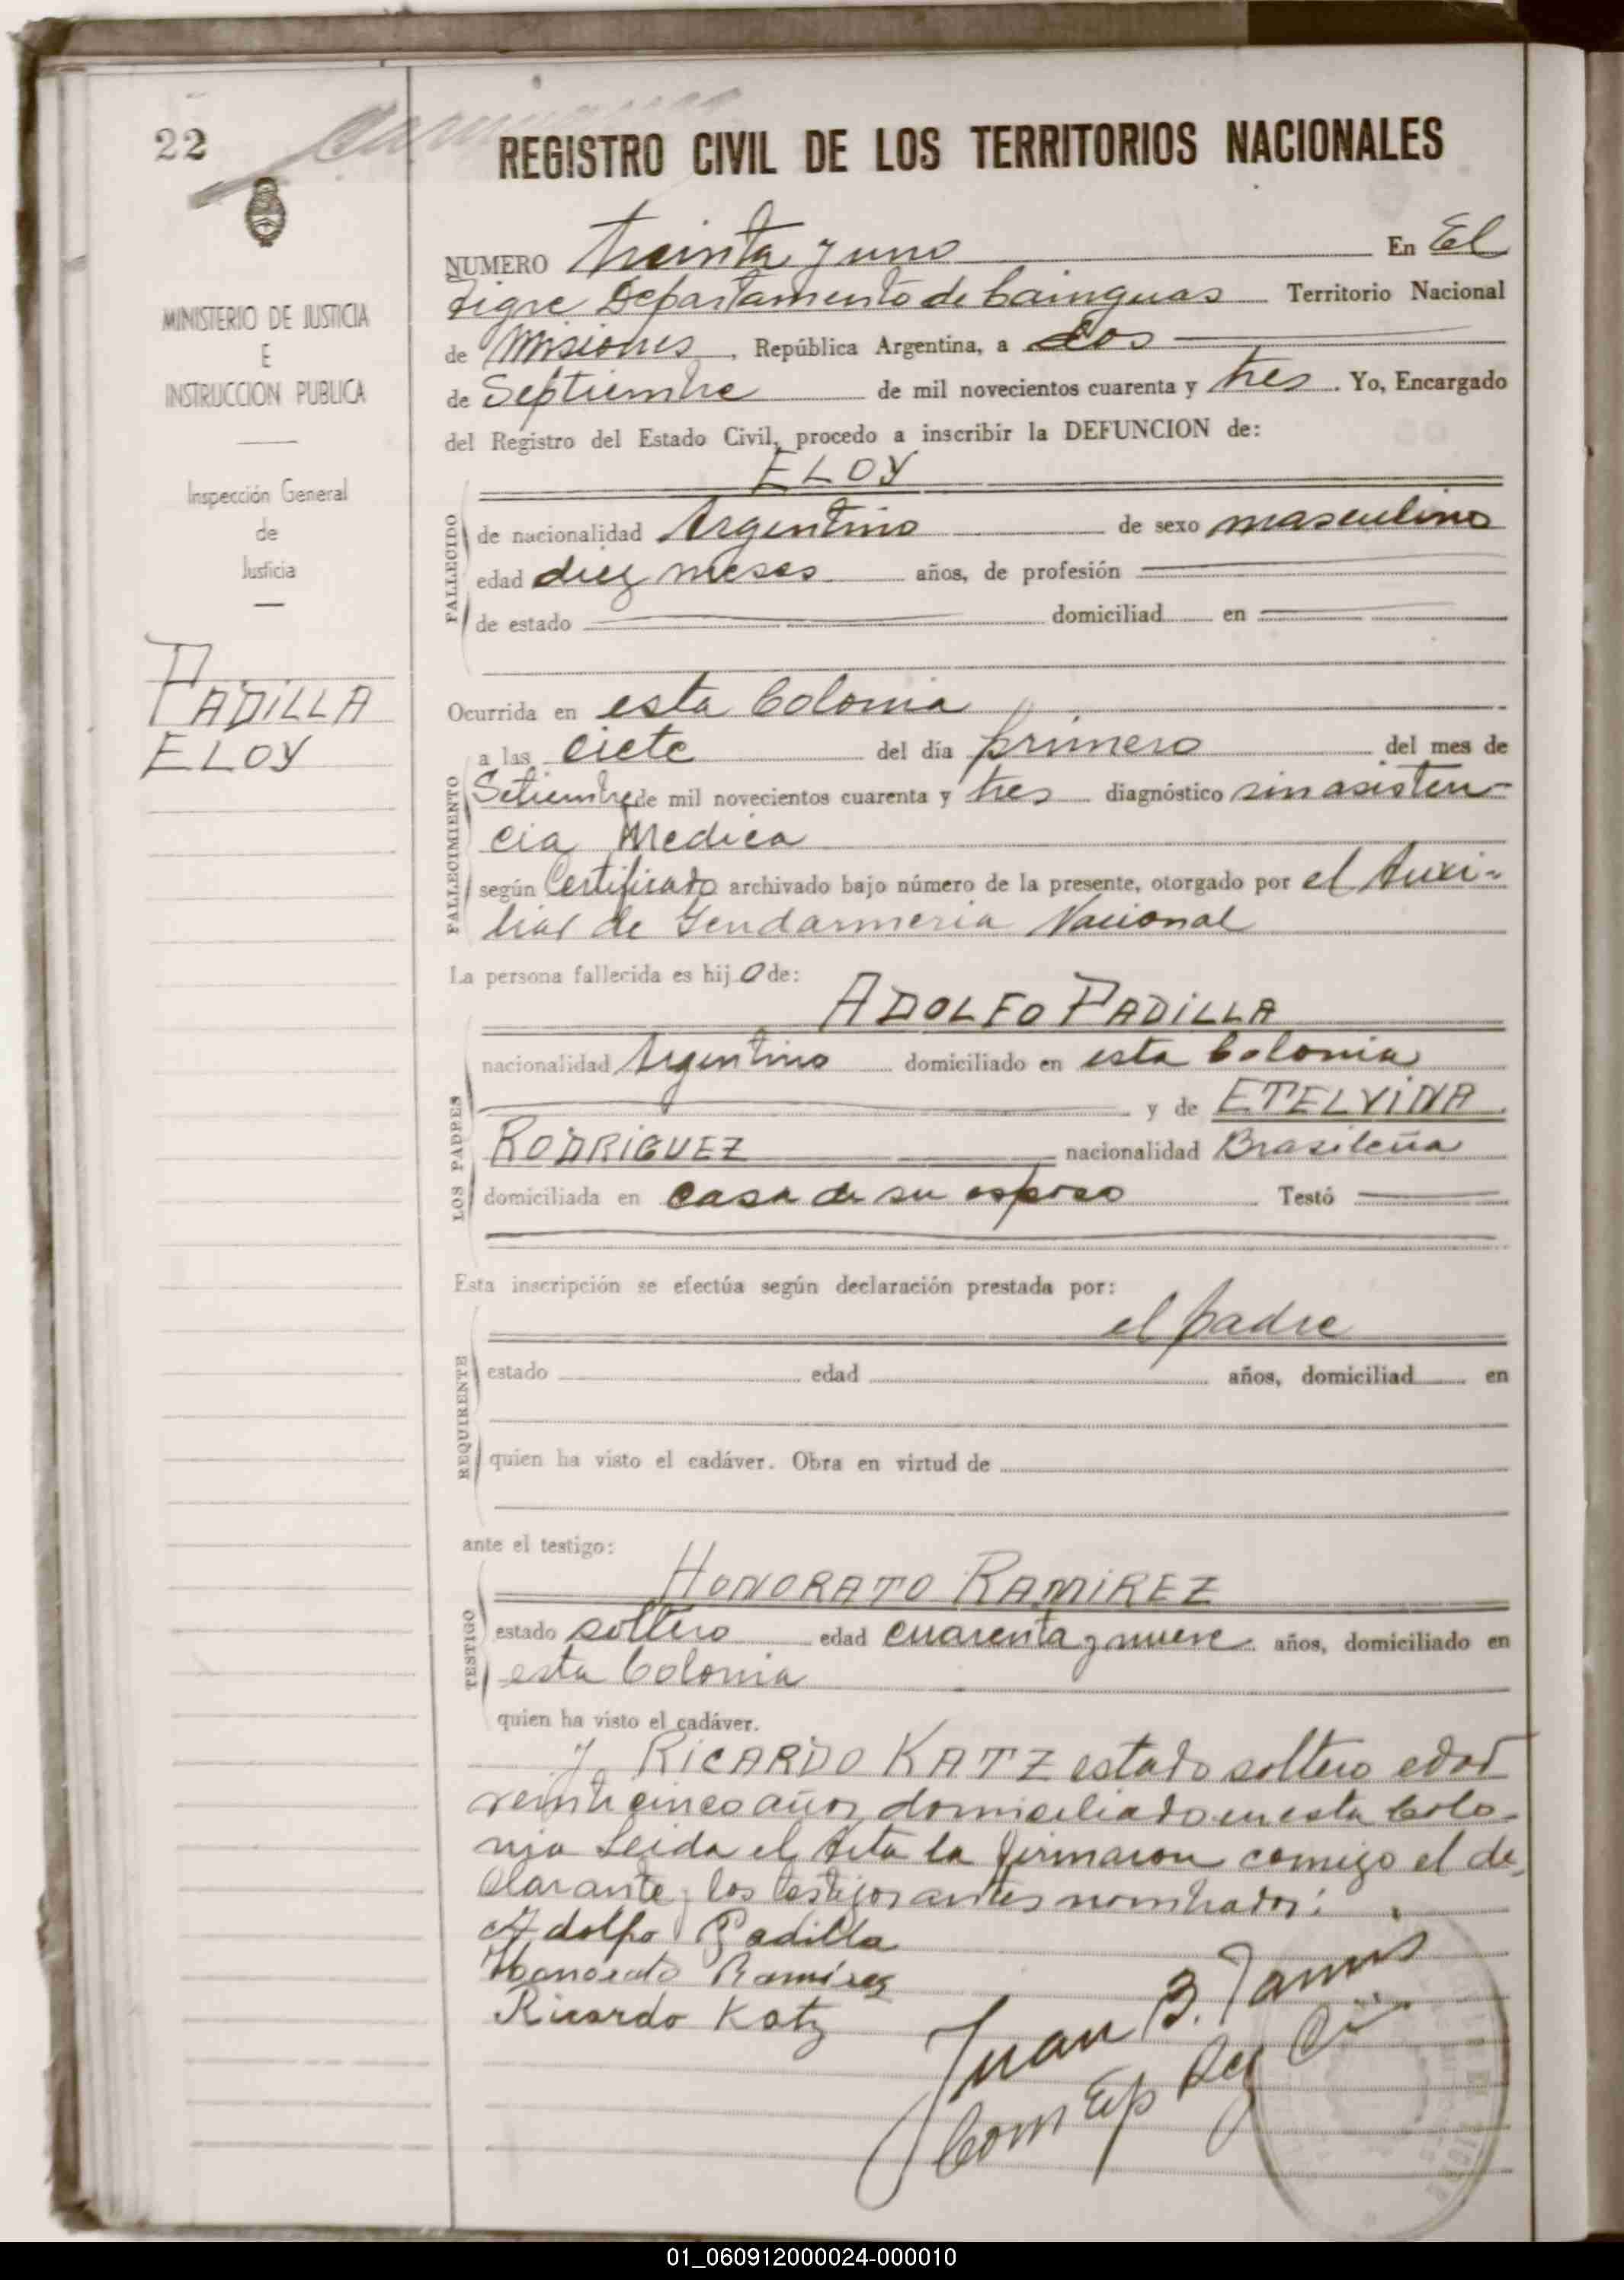 22
REGISTRO CIVIL DE LOS TERRITORIOS NACIONALES
MINISTERIO DE JUSTICIA
E
INSTRUCCION PUBLICA
Inspección General
de
Justicia
PADILLA
ELOY
NUMERO treinta y uno En El
tigre Departamento de Cainguas Territorio Nacional
de Misiones, República Argentina, a dos
de Septiembre de mil novecientos cuarenta y tres. Yo, Encargado
del Registro del Estado Civil, procedo a inscribir la DEFUNCION de:
ELOY
FALLECIDO
de nacionalidad Argentino de sexo masculino
edad diez meses años, de profesión
de estado domiciliad en
Ocurrida en esta Colonia
a las ciete del día primero del mes de
FALLECIMIENTO
Setiembre de mil novecientos cuarenta y tres diagnóstico sin asisten-
cia Medica
según Certificado archivado bajo número de la presente, otorgado por el Auxi-
liar de Gendarmeria Nacional
La persona fallecida es hijo de:
ADOLFO PADILLA
LOS PADRES
nacionalidad Argentino domiciliado en esta Colonia
y de ETELVINA
RODRIGUEZ nacionalidad Brasileña
domiciliada en casa de su esposo Testó
Esta inscripción se efectúa según declaración prestada por:
el padre
REQUIRENTE
estado edad años, domiciliad en
quien ha visto el cadáver. Obra en virtud de
ante el testigo:
HONORATO RAMIREZ
TESTIGO
estado soltero edad cuarenta y nueve años, domiciliado en
esta Colonia
quien ha visto el cadáver.
y RICARDO KATZ estado soltero edad
veinticinco años domiciliado en esta Colo-
nia Leida el Acta la firmaron comigo el de-
clarante y los testigos antes nombrados:
Adolfo Padilla
Honorato Ramirez
Ricardo Katz
Juan B.
Reg Ci
01_060912000024-000010